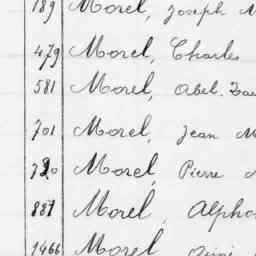 189 Morel, Joseph M
479 Morel, Charles
581 Morel, Abel.
701 Morel, Jean M
720 Morel, Pierre M
881 Morel, Alpho
1466 Morel